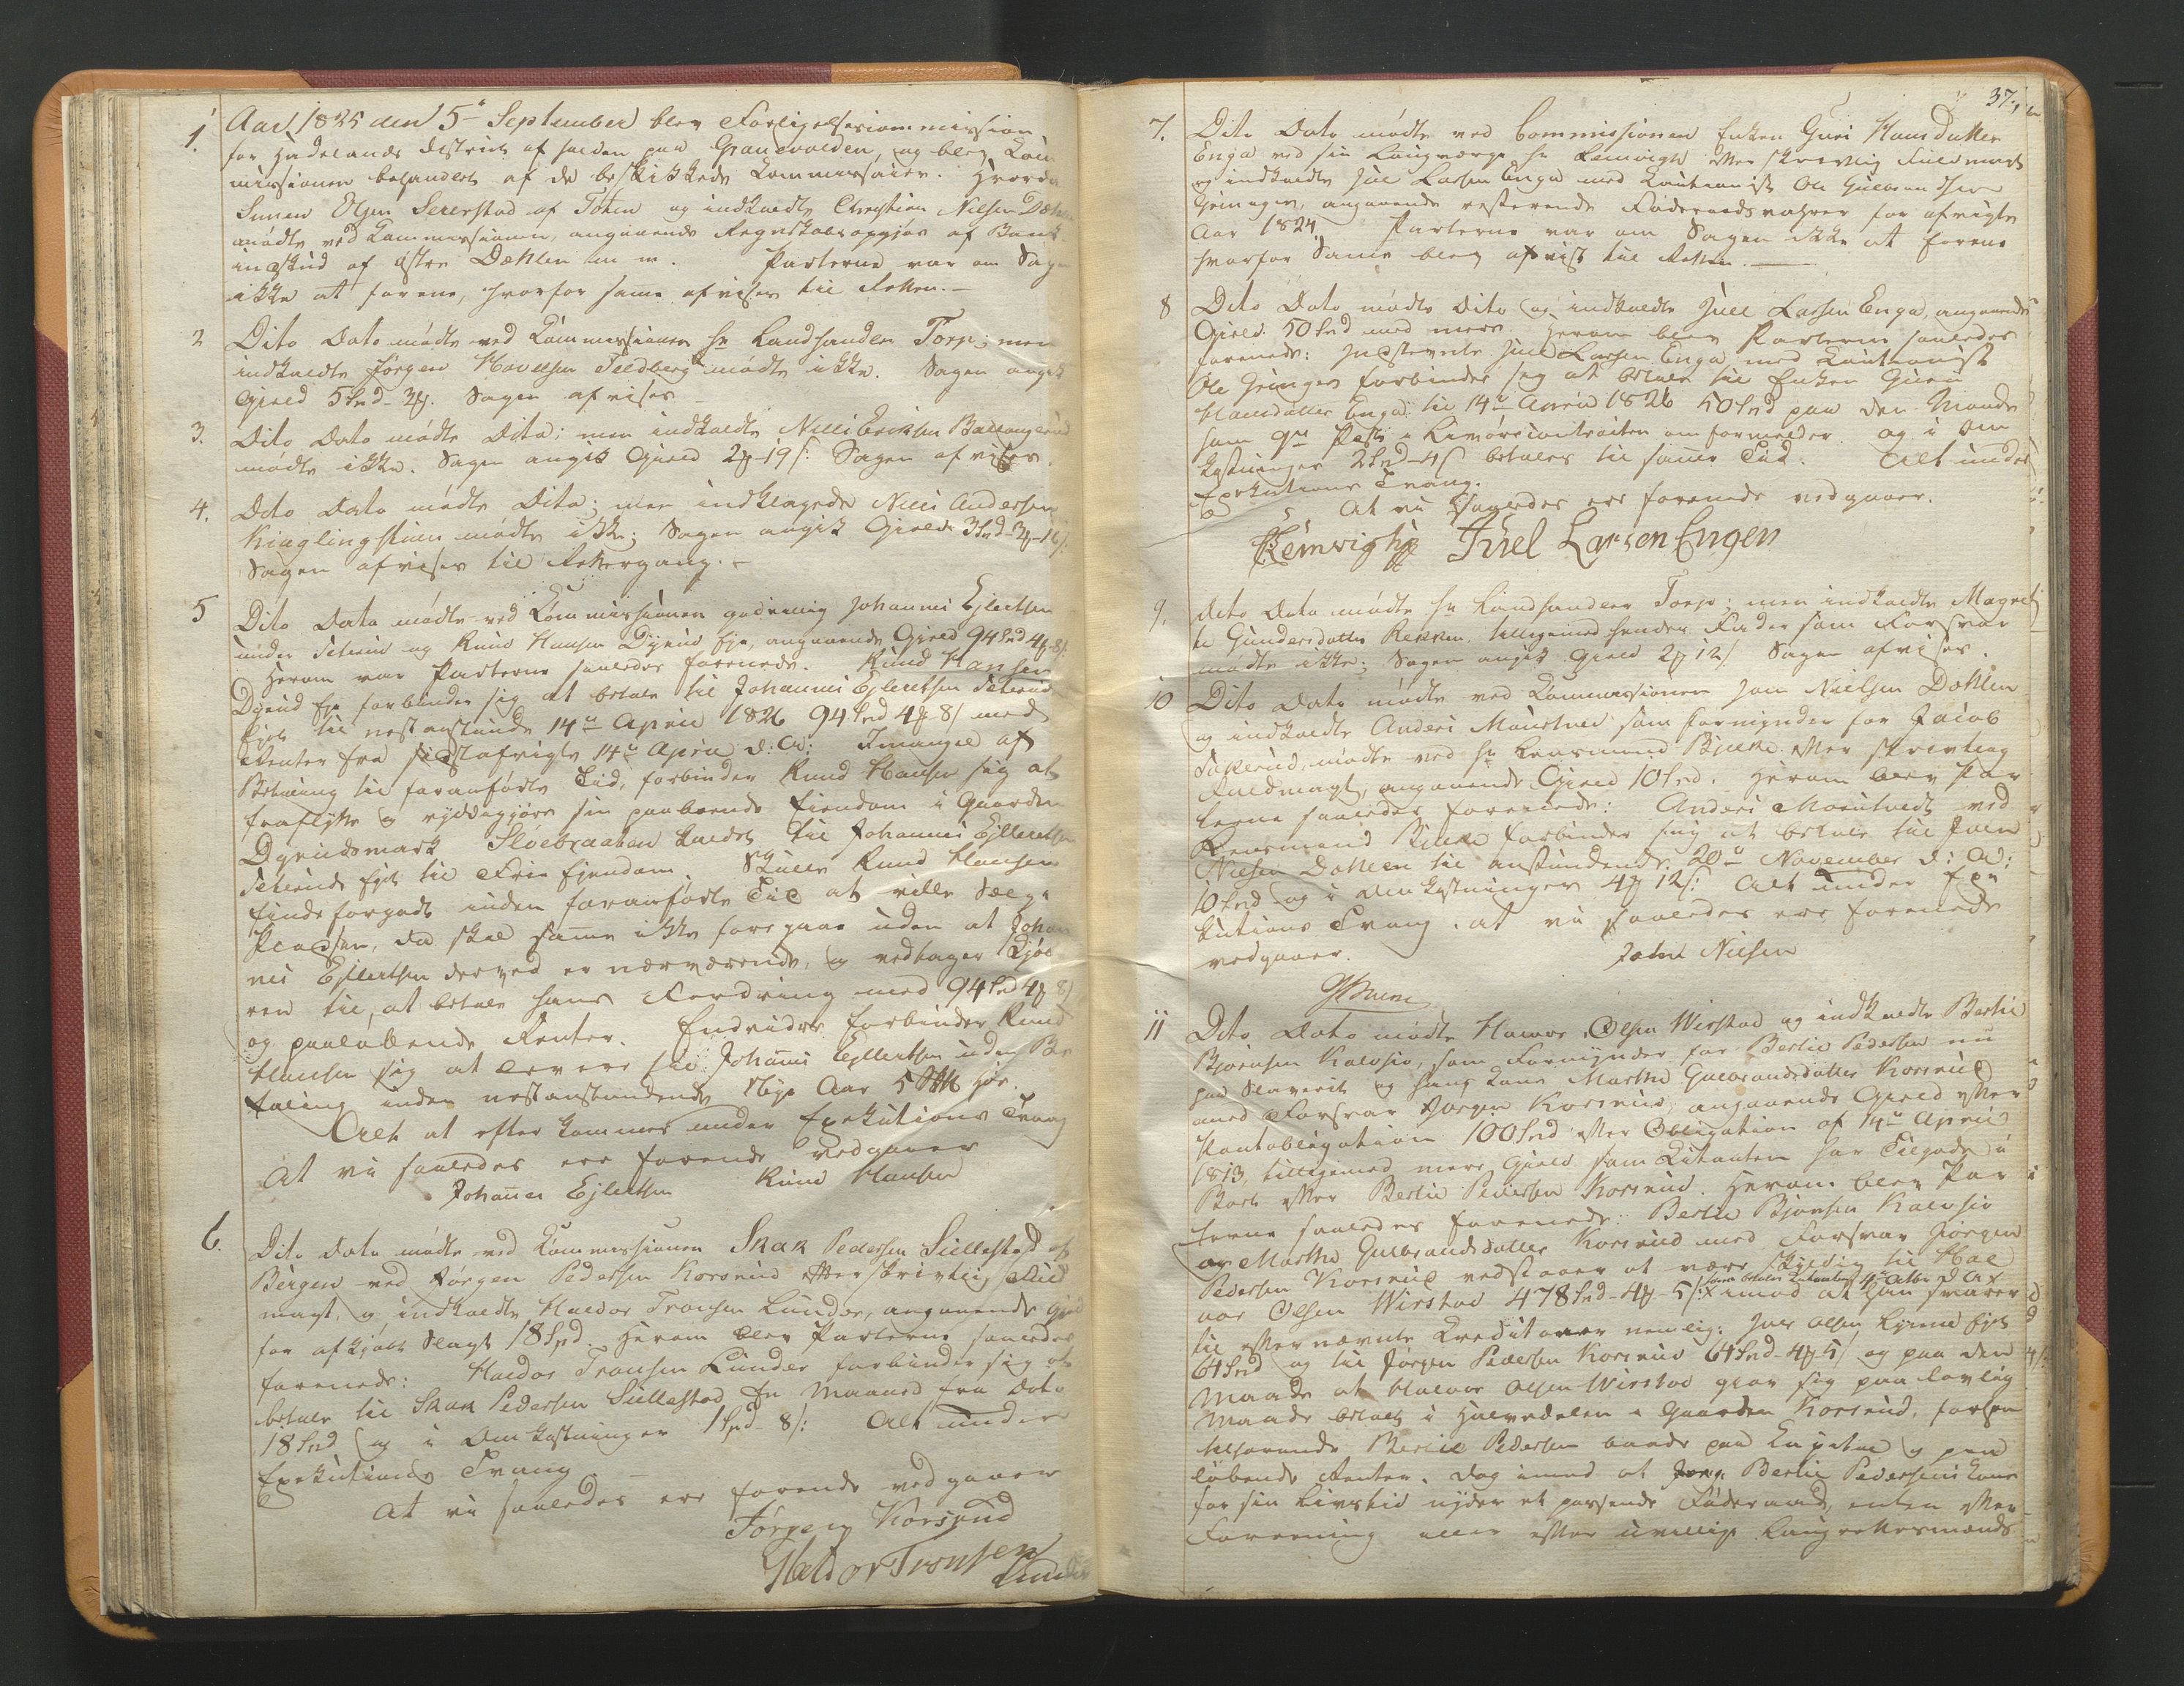 1. Aar 1825 den 5te September blev Forligelsescommission
for Hadelands District afholden paa Granevolden, og blev Kom
missionen behandlet af de beskikkede Commissairer. Hvorda
Simen Olsen Seierstad af Toten og indkaldte Christian Nielsen Dæhlen
mødte ved Commissionen, angaaende Regnskabsopgjør af Bank
indskud af østre Dæhlen m m. Parterne var om Sagen
ikke at forene, hvorfor samme afvises til Retten.
2 Dito Dato mødte ved Commissionen Hr Landhandler Torp; men
indkaldte Jørgen Hovelsen Feldberg mødte ikke. Sagen angik
Gjeld 5 Spd - 3 ₻. Sagen afvises
3. Dito Dato mødte Dito; men indkaldte Niels Eriksen
mødte ikke. Sagen angik Gjeld 2 ₻ - 19 s: Sagen afvises.
4. Dito Dato mødte Dito; men indklagede Niels Andersen
Kiæglingstuen mødte ikke; Sagen angik Gjeld 3 Spd - 3 ₻ - 16 s:
Sagen afvises til Rettergang.
5 Dito Dato mødte ved Commissionen godvillig Johannes Ejlertsen
Seterud og Knud Hansen Dyrud Eje, angaaende Gjeld 94 Spd 4 ₻ 8 s:
Herom var Parterne saaledes forenede. Knud Hansen
Dyrud Eje forbinder sig at betale til Johannes Ejlertsen Seterud
Ejet til nestanstunde 14de April 1826 94 Spd 4 ₻ 8 s med
Renter fra sidstafvigte 14de April d: A: I mangel af
Betaling til foranførte Tid, forbinder Knud Hansen sig at
fraflytte og ryddiggjøre sin paaboende Eiendom i Gaarden
Dyrudsmark Sløebraaten kaldet til Johannes Ejlertsen
Seterud Ejet til Frie Eiendom. Skulle Knud Hansen
finde forgodt inden foranførte Tid at ville Sælge
Pladsen, da skal samme ikke foregaae uden at Johan
nes Ejlertsen derved er nærværende, og vedtager Kjøb
ren til, at betale hans Fordring med 94 Spd 4 ₻ 8 s
og paaløbende Renter. Endvidre forbinder Knud
Hansen sig at levere til Johannes Ejlertsen uden Be
taling inden nestanstundende Nye Aar 5 Høe.
Alt at efterkommes under Exekutions Tvang
At vi saaledes ere forende vedgaaer
Johannes Ejlertsen Knud Hansen
6. Dito Dato mødte ved Commissionen Skak Pedersen Sillestad af
Bergen ved Jørgen Pedersen Korsrud efter skrivtlig Fuld
magt, og indkaldte Haldor Tronsen Lunder, angaaende Gjeld
for afkjøbt Slagt 18 Spd. Herom blev Parterne saaledes
forenede: Haldor Tronsen Lunder forbinder sig at
betale til Skak Pedersen Sillestad En Maaned fra Dato
18 Spd og i Omkostninger 1 Spd 8 s: Alt under
Exekutions Tvang
At vi saaledes ere forende vedgaaer
Jørgen Korsrud
Haldor Tronsen
Lunder
37.
7. Dito Dato mødte ved Commissionen Enken Guri Hansdatter
Enga ved sin Laugværge Hr Remvigh efter skrivtlig Fuldmagt
og indkaldte Juel Larsen Enga med Kautionist Ole Gulbrandsen
Gringer, angaaende resterende Føderaadsvahrer for afvigte
Aar 1824. Parterne var om Sagen ikke at forene
hvorfor Samme blev afvist til Retten.
8 Dito Dato mødte Dito og indkaldte Juel Larsen Enga, angaaende
Gjeld 50 Spd med mere Herom blev Parterne saaledes
forenede: Indstevnte Juel Larsen Enga med Kautionist
Ole Gringer forbinder sig at betale til Enken Guri
Hansdatter Enga til 14de April 1826 50 Spd paa den Maade
som Post i om formelder. og i Om
kostninger 2 Spd - 4 s betales til samme Tid. Alt under
Exekutions Tvang.
At vi Saaledes ere forenede vedgaaer.
Remvigh Juel Larsen Engen
9. Dito Dato mødte Hr Landhandler Torp; men indkaldte Magret
he Gundersdatter tilligemed hendes Fader som Forsvar
mødte ikke; Sagen angik Gjeld 2 ₻ 12 s Sagen afvises.
10 Dito Dato mødte ved Commissionen John Nielsen Dahlen
og indkaldte Anders som Formynder for Jacob
mødte ved Hr Lensmand efter skrivtlig
Fuldmagt, angaaende Gjeld 10 Spd. Herom blev Par
terne saaledes forenede: Anders ved
Lensmand forbinder sig at betale til John
Nielsen Dahlen til anstundende 20de November d: A:
10 Spd og i Omkostninger 4 ₻ 12 s: Alt under Exe
kutions Tvang. at vi saaledes ere forenede
vedgaaer. John Nielsen
11 Dito Dato mødte Halvor Olsen Wirstad og indkaldte Bertil
Bjørnsen Kalvsjø, som Formynder for Bertil Pedersen nu
paa Slaveriet og hans Kone Marthe Gulbrandsdatter Korsrud
med Forsvar Jørgen Korsrud, angaaende Gjeld efter
Pantobligation 100 Spd efter Obligation af 14de April
1813, tilligemed mere Gjeld som Citanten har Tilgode i
Boet efter Bertil Pedersen Korsrud. Herom blev Par
terne saaledes forenede: Bertil Bjørnsen Kalvsjø
og Marthe Gulbrandsdatter Korsrud med Forsvar Jørgen
Pedersen Korsrud vedstaaer at være skyldig til Hal
vor Olsen Wirstad 478 Spd - 4 ₻ - 5 s: imod at han svarer
til efternævnte Creditorer nemlig: Ejet
64 Spd og til Jørgen Pedersen Korsrud 64 Spd - 4 ₻ 5 s og paa den
Maade at Halvor Olsen Wirstad giør sig paa lovlig
Maade betalt i Halvedelen i Gaarden Korsrud,
tilhørende Bertil Pedersen baade paa Capital og paa
løbende Renter. Dog imod at Bertil Pedersens Kone
for sin Livstid nyder et passende Føderaad, enten efter
Forening eller efter uvillige Laugrettesmænds